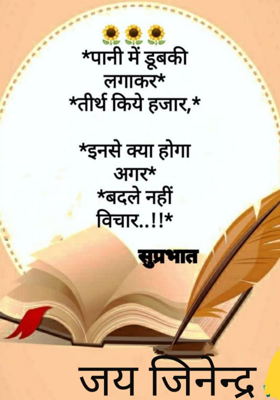 🌻🌻🌻
*पानी में डूबकी
लगाकर*
*तीर्थ किये हजार,*
*इनसे क्या होगा
अगर*
*बदले नहीं
विचार..!!*
सुप्रभात
जय जिनेन्द्र